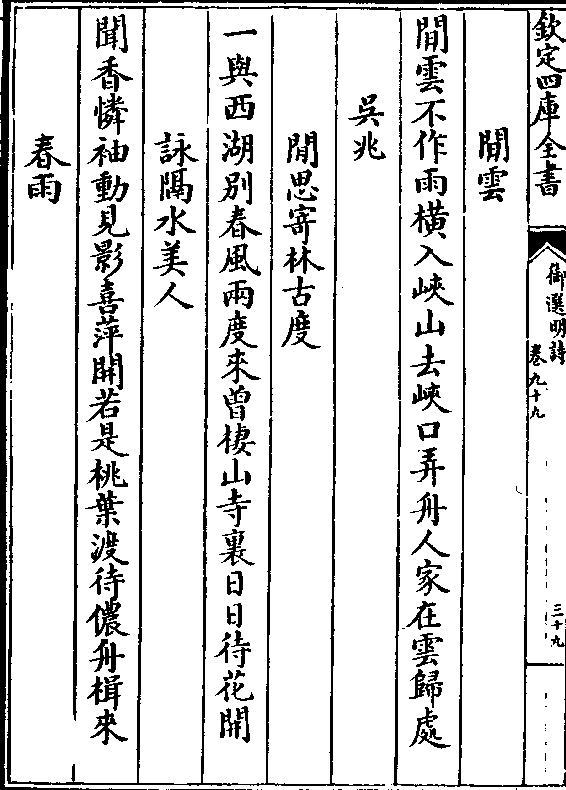 欽定四庫全書
御選明詩
卷九十九
三十九
閒雲
閒雲不作雨橫入峽山去峽口弄舟人家在雲歸處
吳兆
閒思寄林古度
一與西湖別春風兩度來曾棲山寺裏日日待花開
詠隔水美人
聞香憐袖動見影喜萍開若是桃葉渡待儂舟楫來
春雨